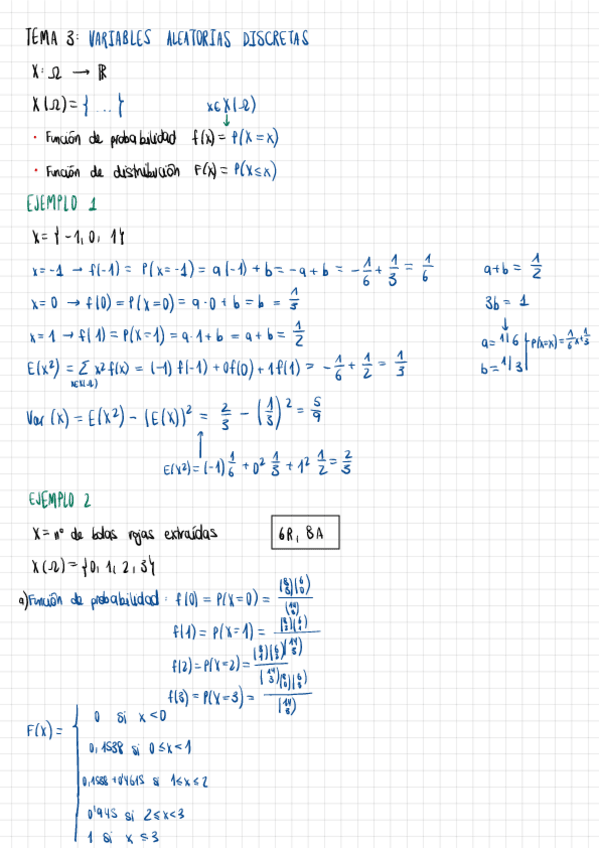 TEMA 3: VARIABLES ALEATORIAS DISCRETAS
X: Ω → ℝ
X(Ω) = { ... }    x ∈ X(Ω)
↓
• Función de probabilidad f(x) = P(X = x)
• Función de distribución F(x) = P(X ≤ x)
EJEMPLO 1
X = {-1, 0, 1}
x = -1 → f(-1) = P(X = -1) = a(-1) + b = -a + b = -1/6 + 1/3 = 1/6    a + b = 1/2
x = 0 → f(0) = P(X = 0) = a·0 + b = b = 1/3    3b = 1
↓
x = 1 → f(1) = P(X = 1) = a·1 + b = a + b = 1/2    a = 1/6    P(X=x) = 1/6 x + 1/3
E(x²) = Σ x² f(x) = (-1) f(-1) + 0f(0) + 1f(1) = -1/6 + 1/2 = 1/3    b = 1/3
Var (x) = E(x²) - (E(x))² = 2/3 - (1/3)² = 5/9
↑
E(x²) = (-1) 1/6 + 0² 1/3 + 1² 1/2 = 2/3
EJEMPLO 2
X = nº de bolas rojas extraídas    6R, 8A
X(Ω) = {0, 1, 2, 3}
a) Función de probabilidad: f(0) = P(X = 0) =
f(1) = P(X = 1) =
f(2) = P(X = 2) =
f(3) = P(X = 3) =
F(x) = { 0 si x < 0
0,1538 si 0 ≤ x < 1
0,1538 + 0'4615 si 1 ≤ x ≤ 2
0'945 si 2 ≤ x < 3
1 si x ≤ 3